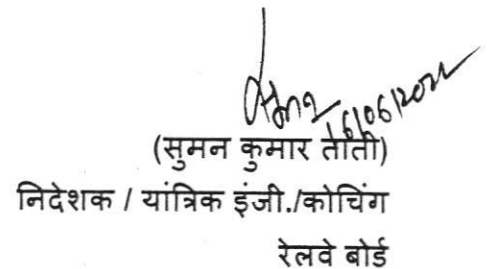 16/06/2022
(सुमन कुमार ताँती)
निदेशक / यांत्रिक इंजी./कोचिंग
रेलवे बोर्ड